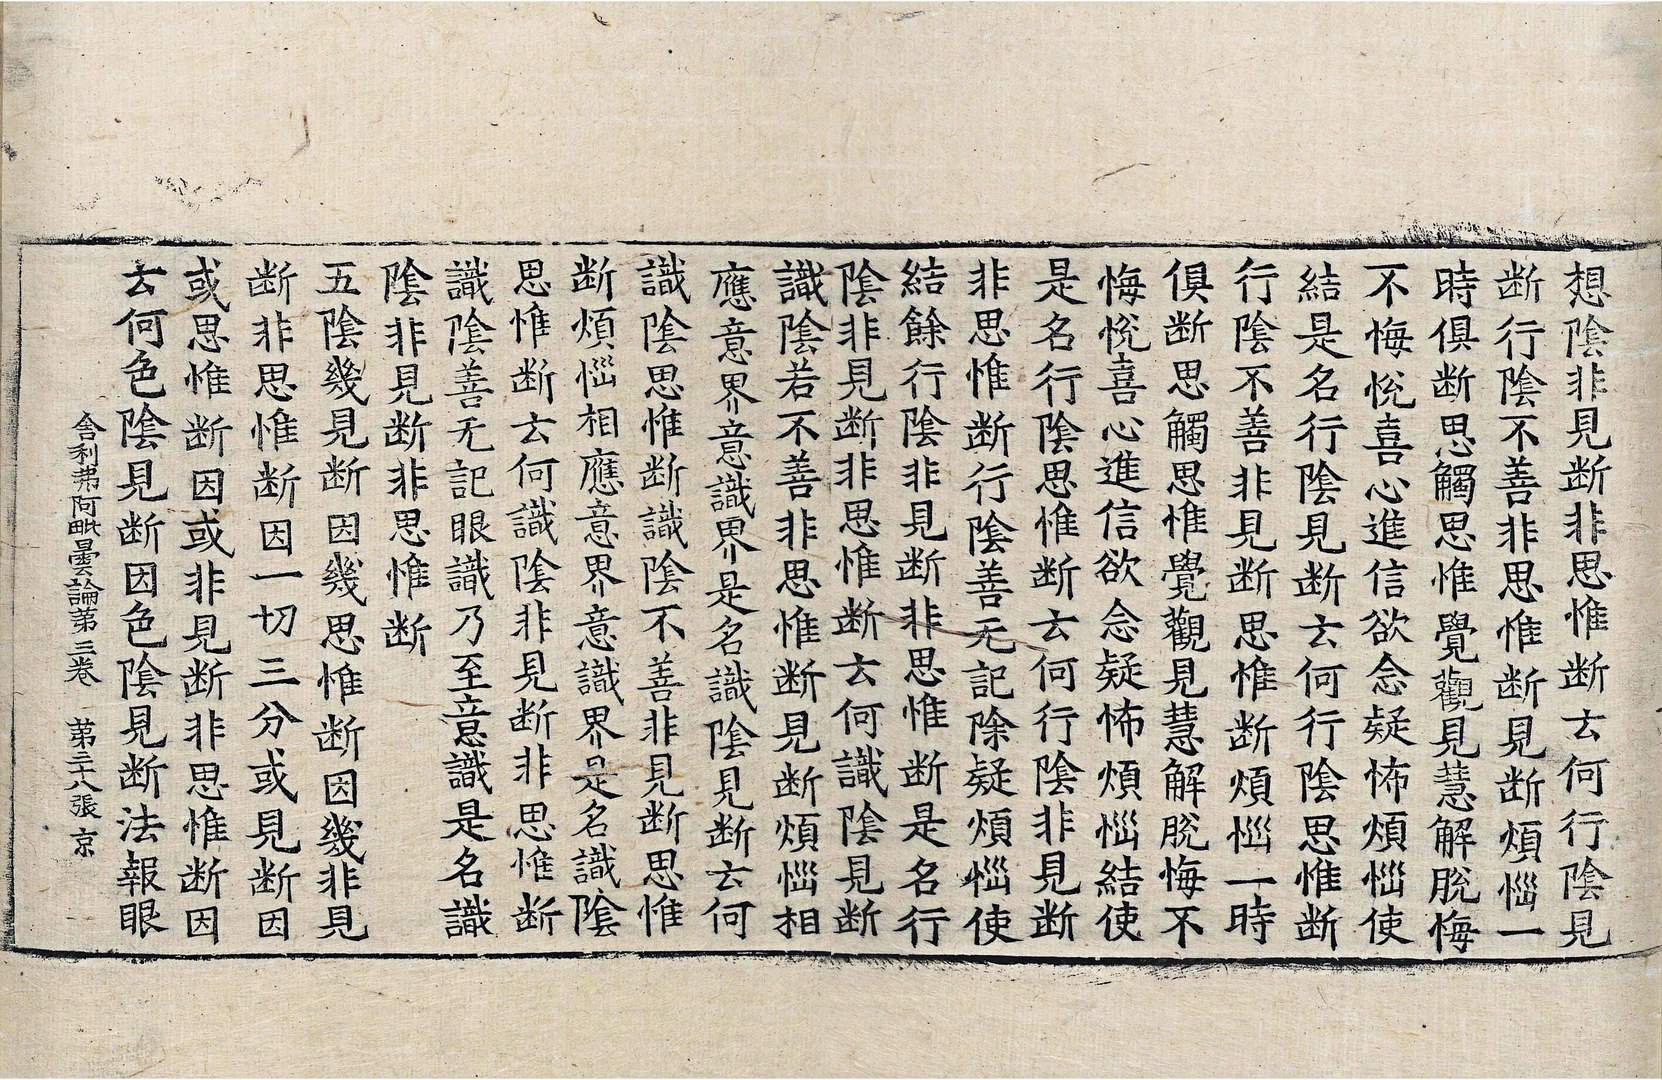 想陰非見断非思惟断云何行陰見
断行陰不善非思惟断見断煩惱一
時俱断思觸思惟覺觀見慧解脫悔
不悔恱喜心進信欲念疑怖煩惱使
結是名行陰見断云何行陰思惟断
行陰不善非見断思惟断煩惱一時
俱断思觸思惟覺觀見慧解脫悔不
悔恱喜心進信欲念疑怖煩惱結使
是名行陰思惟断云何行陰非見断
非思惟断行陰善无記除疑煩惱使
結餘行陰非見断非思惟断是名行
陰非見断非思惟断云何識陰見断
識陰若不善非思惟断見断煩惱相
應意界意識界是名識陰見断云何
識陰思惟断識陰不善非見断思惟
断煩惱相應意界意識界是名識陰
思惟断云何識陰非見断非思惟断
識陰善无記眼識乃至意識是名識
陰非見断非思惟断
五陰幾見断因幾思惟断因幾非見
断非思惟断因一切三分或見断因
或思惟断因或非見断非思惟断因
云何色陰見断因色陰見断法報眼
舍利弗阿毗曇論第三卷　第三十八張　京